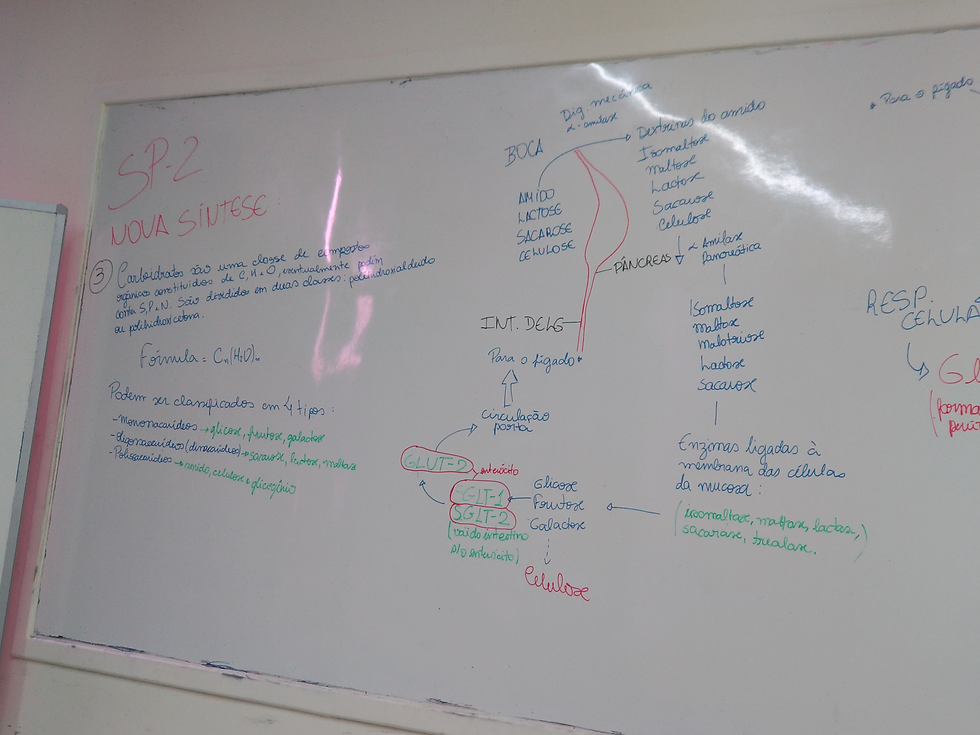 SP-2
NOVA SÍNTESE
③ Carboidratos são uma classe de compostos
orgânicos constituídos de C, H e O, eventualmente podem
conta S, P e N. São divididos em duas classes: polihidroxialdeido
ou polihidroxicetona.
Fórmula = Cn(H2O)n
Podem ser classificados em 4 tipos:
-Monossacarídeos → glicose, frutose, galactose
-Oligossacarídeos (dissacarídeos) → sacarose, lactose, maltose
-Polissacarídeos → amido, celulose e glicogênio
Dig. mecânica
α-amilase
BOCA
AMIDO
LACTOSE
SACAROSE
CELULOSE
Dextrinas do amido
Isomaltose
Maltose
Lactose
Sacarose
Celulose
PÂNCREAS
α Amilase
Pancreática
Isomaltose
Maltose
Malotriose
Lactose
Sacarose
Enzimas ligadas à
membrana das células
da mucosa:
(isomaltase, maltase, lactase,)
sacarase, trealase.
Glicose
Frutose
Galactose
Celulose
SGLT-1
SGLT-2
(vai do intestino
p/o enterócito)
GLUT-2
enterócito
Circulação
porta
Para o fígado
INT. DELG
• Para o fígado
RESP.
CELULA
GL
(forma